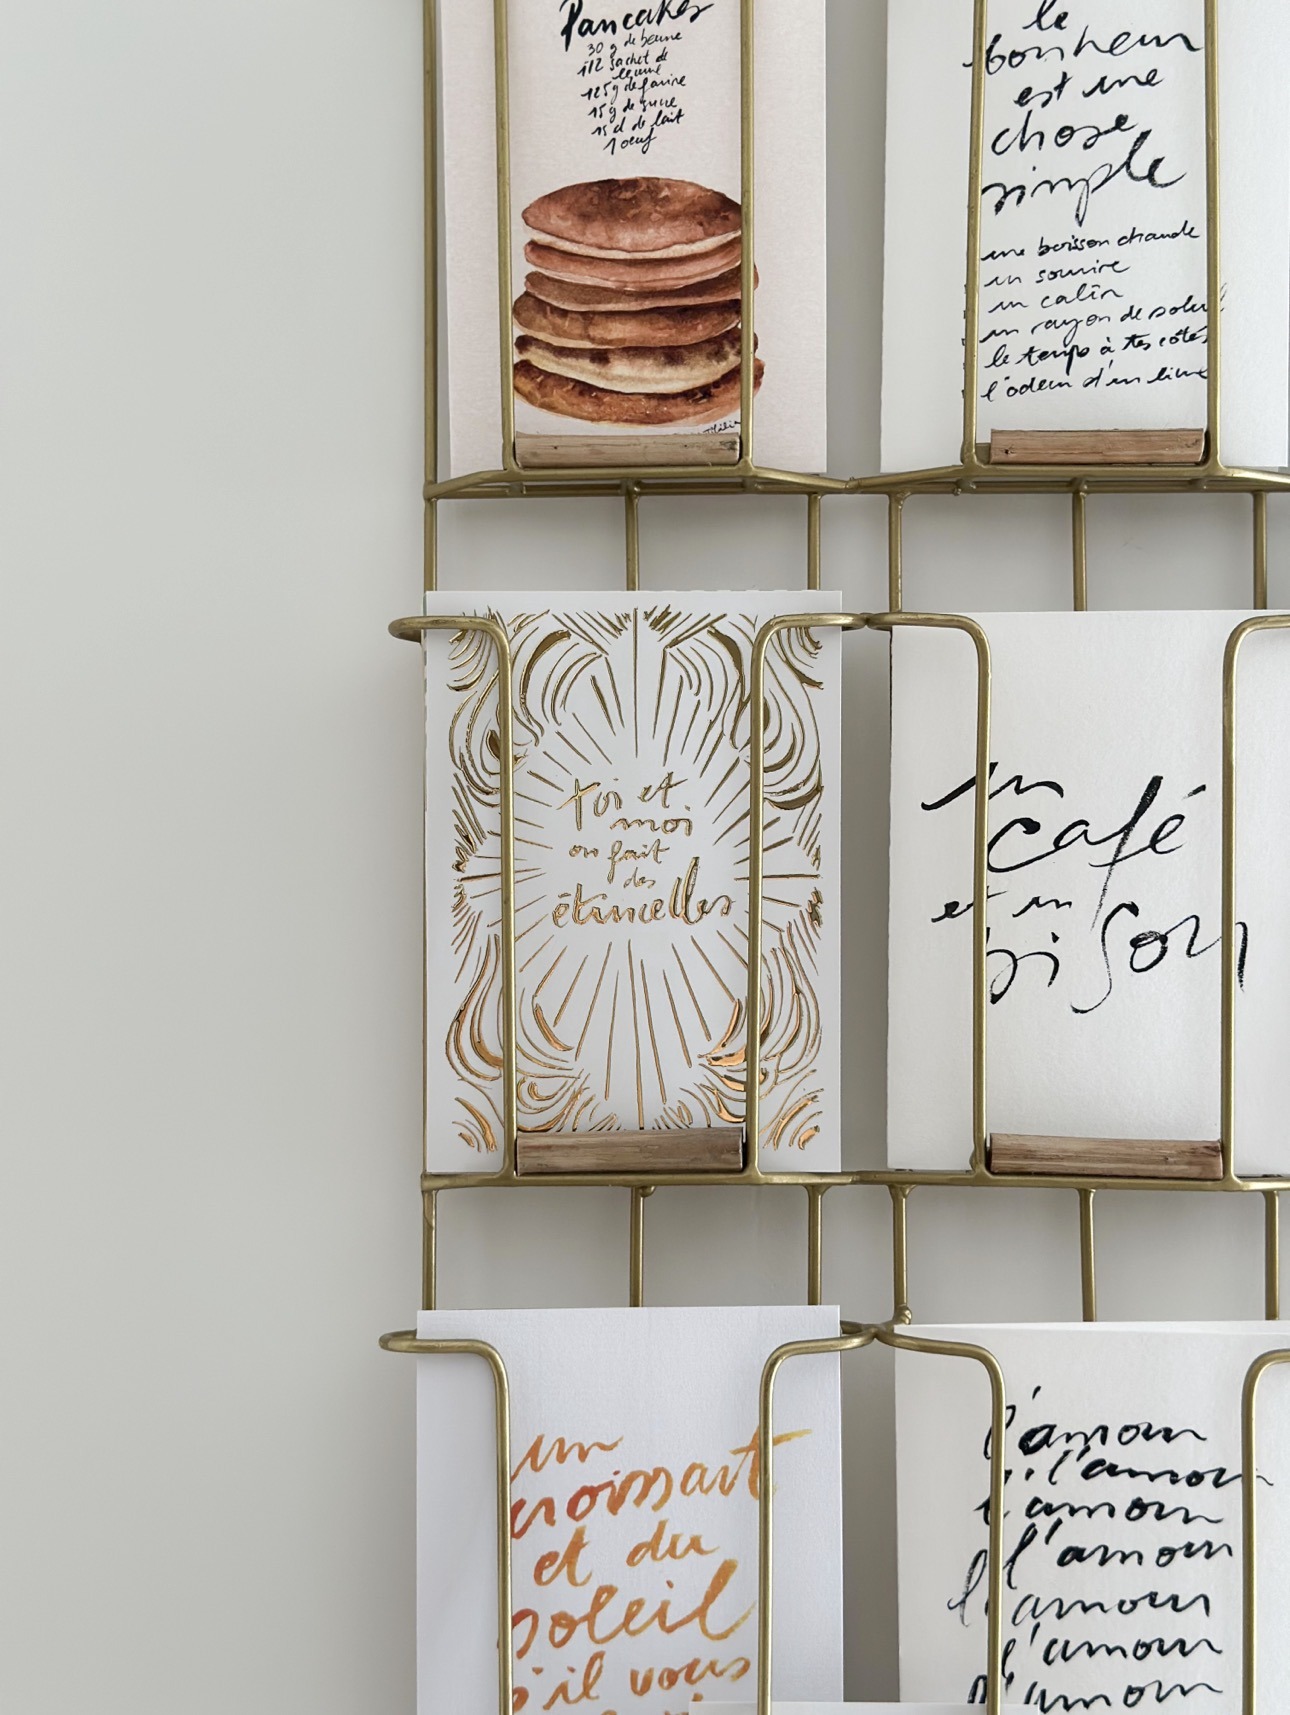 Pancakes
30 g de beurre
1/2 sachet de
levure
125g de farine
15 g de sucre
15 cl de lait
1 oeuf
le
bonheur
est une
chose
simple
une boisson chaude
un sourire
un calin
un rayon de soleil
le temps à tes côtés
l'odeur d'un livre
toi et
moi
on fait
des
étincelles
un
café
et un
bisou
un
croissant
et du
soleil
s'il vous
l'amour
l'amour
l'amour
l'amour
l'amour
l'amour
l'amour